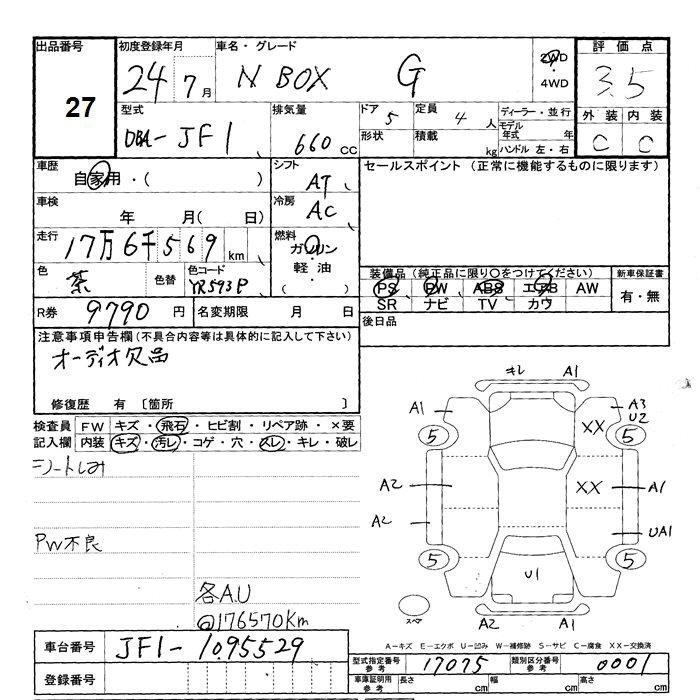 出品番号 27
初度登録年月 24 7月
車名・グレード N BOX G
2WD
4WD
評価点 3.5
型式 DBA-JF1
排気量 660 CC
ドア 5
形状
定員 4 人
積載 kg
ディーラー・並行
モデル年式 年
ハンドル 左・右
外装 内装
C C
車歴 自家用・( )
シフト AT
セールスポイント (正常に機能するものに限ります)
車検 年 月( 日)
冷房 AC
走行 17万6千569 km
燃料 ガソリン
軽油・
( )
色 茶 色替 色コード YR593P
装備品 (純正品に限り○をつけてください)
PS PW ABS エアB AW
SR ナビ TV カワ
新車保証書
有・無
R券 9790 円 名変期限 月 日
後日品
注意事項申告欄(不具合内容等は具体的に記入して下さい)
オーディオ欠品
修復歴 有 〔箇所 〕
検査員 FW キズ・飛石・ヒビ割・リペア跡・×要
記入欄 内装 キズ・汚レ・コゲ・穴・スレ・キレ・破レ
シートしみ
PW不良
各A.U
@176570Km
キレ A1
A1 A3
U2
5 XX 5
A2 XX A1
A2 UA1
5 5
U1
スペア
A2 A1
A-キズ E-エクボ U-凹み W-補修跡 S-サビ C-腐食 XX-交換済
車台番号 JF1-1095529
登録番号
型式指定番号 参考 17075 類別区分番号 参考 0001
車庫証明用 参考 長さ cm 幅 cm 高さ cm